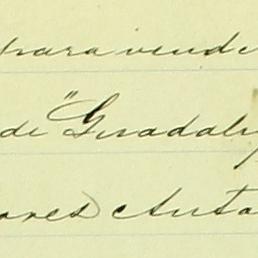 para vende
de "Guadalu
ores Anto